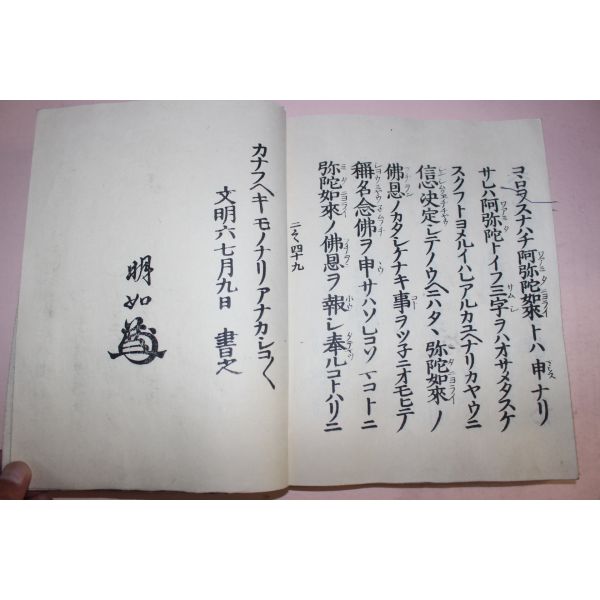 コヽロヲスナハチ阿弥陀如來トハ申ナリ
サレハ阿弥陀トイフ三字ヲハオサメタスケ
スクフトヨメルイハレアルカユヘナリカヤウニ
信心決定シテノウヘニハタヽ弥陀如來ノ
佛恩ノカタシケナキ事ヲツネニオモヒテ
稱名念佛ヲ申サハソレコソマコトニ
弥陀如來ノ佛恩ヲ報シ奉ルコトハリニ
二之四十九
カナフヘキモノナリアナカシコ〱
文明六七月九日 書之
明如